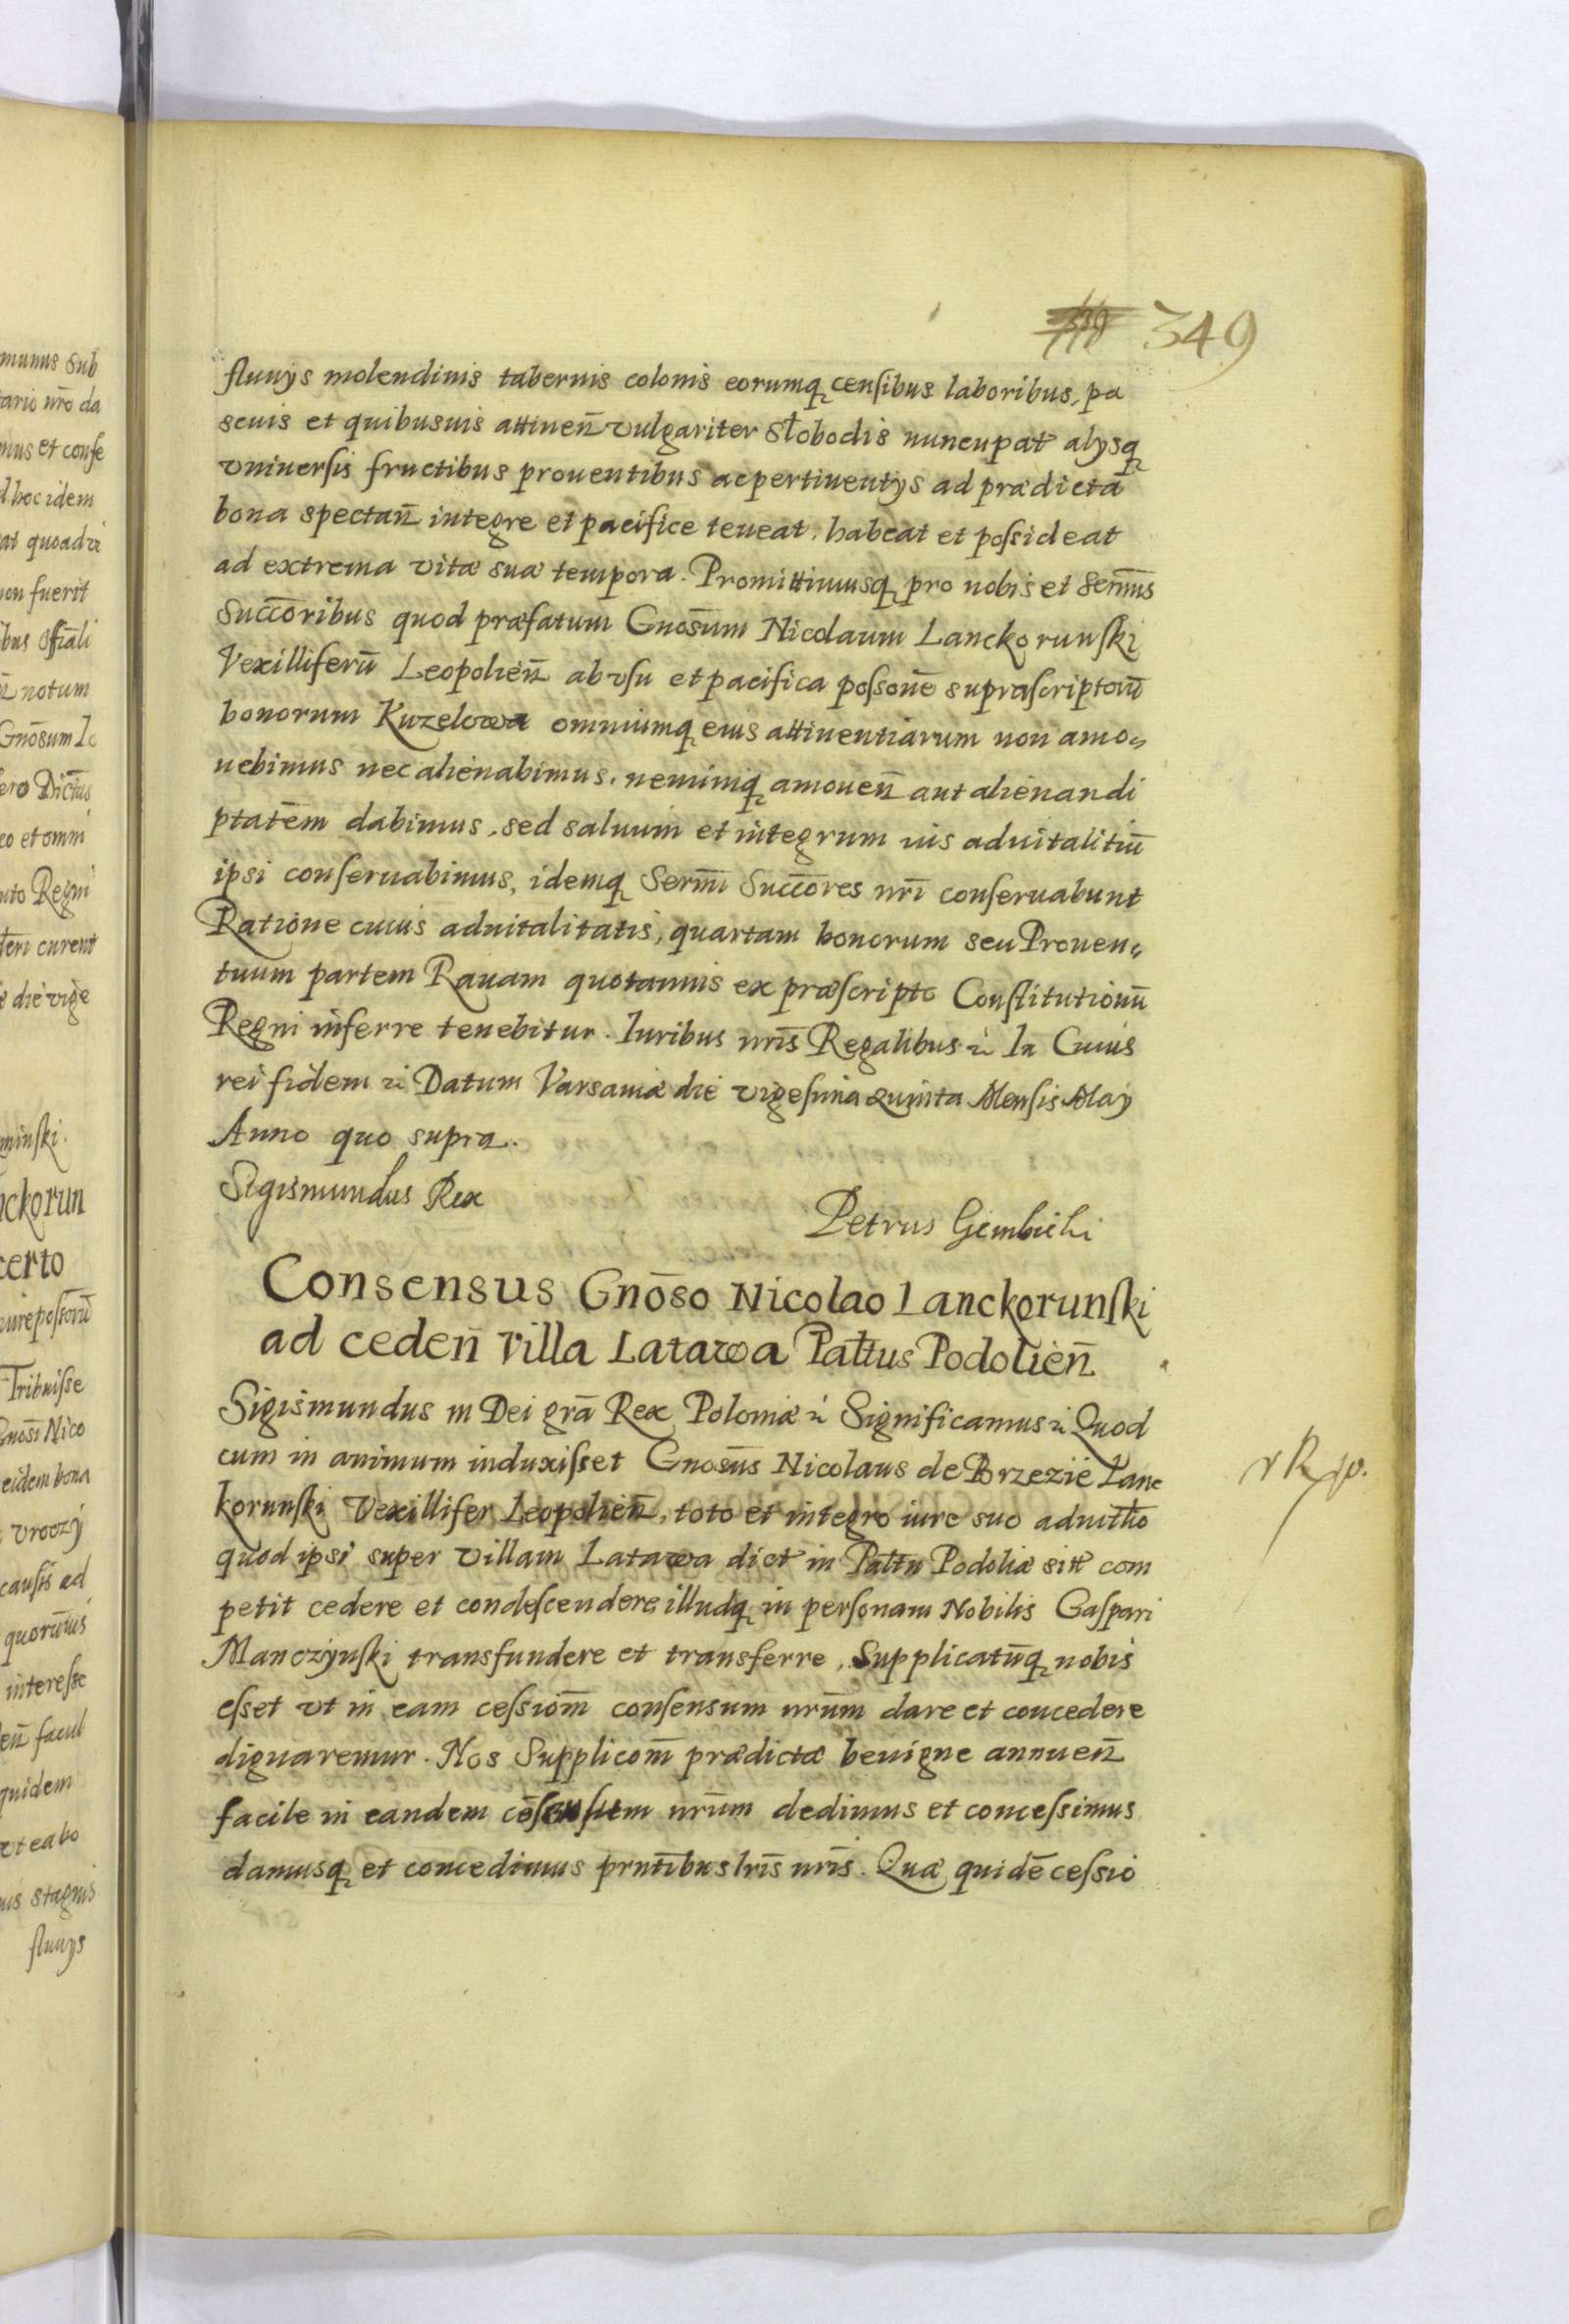 349
fluuÿs molendinis tabernis colonis eorumq censibus laboribus, pa
scuis et quibusuis attinen̄ vulgariter Słobodis nuncupat alÿsq
vniuersis fructibus prouentibus ac pertinentÿs ad prædicta
bona spectan̄ integre et pacifice teneat, habeat et possideat
ad extrema vitæ suæ tempora. Promittimusq pro nobis et Sermis
Succōribus quod præfatum Gnōsum Nicolaum Lanckorunski
Vexilliferū Leopolien̄ ab vsu et pacifica possōne suprascriptorū
bonorum Kuzelowa omniumq eius attinentiarum non amo=
uebimus nec alienabimus, neminiq amouen̄ aut alienandi
ptatēm dabimus, sed saluum et integrum ius aduitalitiū
ipsi conseruabimus, idemq Sermi Succōres nr̄i conseruabunt
Ratione cuius aduitalitatis, quartam bonorum seu Prouen=
tuum partem Rauam quotannis ex præscripto Constitutionū
Regni inferre tenebitur. Iuribus nr̄is Regalibus et In Cuius
rei fidem et Datum Varsauiæ die vigesima quinta Mensis Maÿ
Anno quo supra.
Sigismundus Rex
Petrus Gembicki
Consensus Gnōso Nicolao Lanckorunski
ad ceden̄ villa Latawa Pałtus Podolien̄
Sigismundus III Dei grā Rex Poloniæ et Significamus et Quod
cum in animum induxisset Gnosūs Nicolaus de Brzezie Lanc
korunski Vexillifer Leopolien̄, toto et integro iure suo aduitłio
quod ipsi super villam Latawa dict in Pałtu Podoliæ sitt com
petit cedere et condescendere illudq in personam Nobilis Gaspari
Manczÿnski transfundere et transferre, Supplicatūq nobis
esset vt in eam cessiōm consensum nr̄um dare et concedere
dignaremur. Nos Supplicōm prædictæ benigne annuen̄
facile in eandem cōsensum nr̄um dedimus et concessimus
damusq et concedimus prntibus lr̄is nr̄is. Quæ quidē cessio
munus Sub
tario nr̄o da
mus et conse
d hoc idem
at quoad vi
non fuerit
bus Offiali
notum
Gnōsum
ero
eo et omni
uto Regni
teri curent
die vige
minski.
nckorun
certo
iure possorū
Tribuisse
Gnosi Nico
eidem bona
causis ad
quorūuis
interesse
en̄ facul
quidem
vt ea bo
uis stagnis
fluuÿs